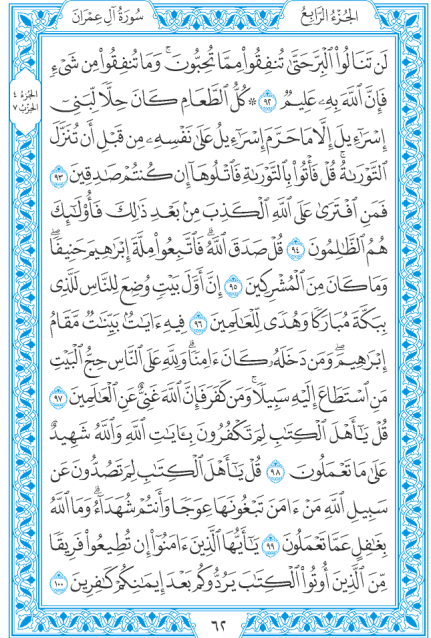 سُورَةُ آلِ عِمْرَانَ
الجُزْءُ الرَّابِعُ
الجُزْءُ ٤
الحِزْبُ ٧
لَن تَنَالُوا۟ ٱلْبِرَّ حَتَّىٰ تُنفِقُوا۟ مِمَّا تُحِبُّونَ ۚ وَمَا تُنفِقُوا۟ مِن شَىْءٍ
فَإِنَّ ٱللَّهَ بِهِۦ عَلِيمٌ ٩٢ ۞ كُلُّ ٱلطَّعَامِ كَانَ حِلًّا لِّبَنِىٓ
إِسْرَٰٓءِيلَ إِلَّا مَا حَرَّمَ إِسْرَٰٓءِيلُ عَلَىٰ نَفْسِهِۦ مِن قَبْلِ أَن تُنَزَّلَ
ٱلتَّوْرَىٰةُ ۗ قُلْ فَأْتُوا۟ بِٱلتَّوْرَىٰةِ فَٱتْلُوهَآ إِن كُنتُمْ صَـٰدِقِينَ ٩٣
فَمَنِ ٱفْتَرَىٰ عَلَى ٱللَّهِ ٱلْكَذِبَ مِنۢ بَعْدِ ذَٰلِكَ فَأُو۟لَـٰٓئِكَ
هُمُ ٱلظَّـٰلِمُونَ ٩٤ قُلْ صَدَقَ ٱللَّهُ ۗ فَٱتَّبِعُوا۟ مِلَّةَ إِبْرَٰهِيمَ حَنِيفًا ۖ
وَمَا كَانَ مِنَ ٱلْمُشْرِكِينَ ٩٥ إِنَّ أَوَّلَ بَيْتٍ وُضِعَ لِلنَّاسِ لَلَّذِى
بِبَكَّةَ مُبَارَكًا وَهُدًى لِّلْعَـٰلَمِينَ ٩٦ فِيهِ ءَايَـٰتٌۢ بَيِّنَـٰتٌ مَّقَامُ
إِبْرَٰهِيمَ ۖ وَمَن دَخَلَهُۥ كَانَ ءَامِنًا ۗ وَلِلَّهِ عَلَى ٱلنَّاسِ حِجُّ ٱلْبَيْتِ
مَنِ ٱسْتَطَاعَ إِلَيْهِ سَبِيلًا ۚ وَمَن كَفَرَ فَإِنَّ ٱللَّهَ غَنِىٌّ عَنِ ٱلْعَـٰلَمِينَ ٩٧
قُلْ يَـٰٓأَهْلَ ٱلْكِتَـٰبِ لِمَ تَكْفُرُونَ بِـَٔايَـٰتِ ٱللَّهِ وَٱللَّهُ شَهِيدٌ
عَلَىٰ مَا تَعْمَلُونَ ٩٨ قُلْ يَـٰٓأَهْلَ ٱلْكِتَـٰبِ لِمَ تَصُدُّونَ عَن
سَبِيلِ ٱللَّهِ مَنْ ءَامَنَ تَبْغُونَهَا عِوَجًا وَأَنتُمْ شُهَدَآءُ ۗ وَمَا ٱللَّهُ
بِغَـٰفِلٍ عَمَّا تَعْمَلُونَ ٩٩ يَـٰٓأَيُّهَا ٱلَّذِينَ ءَامَنُوٓا۟ إِن تُطِيعُوا۟ فَرِيقًا
مِّنَ ٱلَّذِينَ أُوتُوا۟ ٱلْكِتَـٰبَ يَرُدُّوكُم بَعْدَ إِيمَـٰنِكُمْ كَـٰفِرِينَ ١٠٠
٦٢